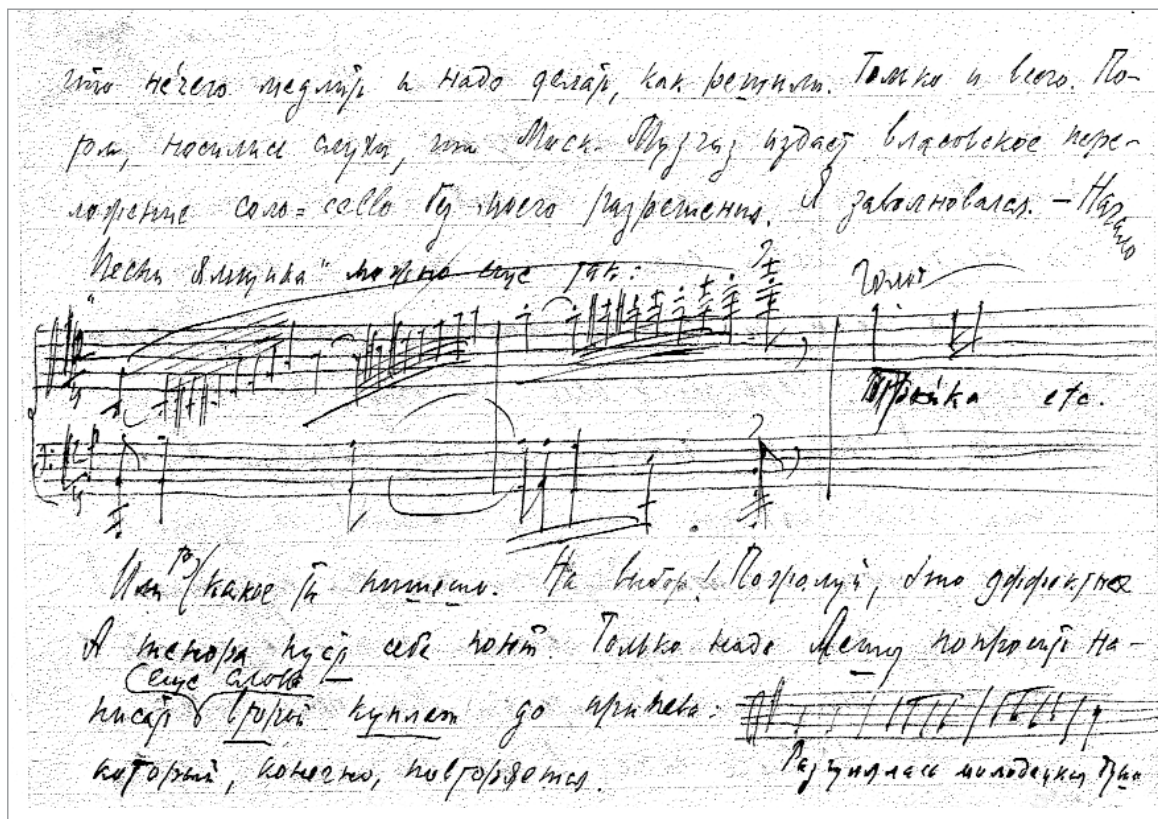 что не́чего медлить и надо делать, как решили. Только и всего. По-
том, носились слухи, что Моск. Музгиз издаёт власовское пере-
ложение соло=cello без моего разрешения. Я заволновался. – Начало
„Песни Ямщика" можно ещё так:
Голос
Тройка etc.
Или какое ты пишешь. На выбор! Пожалуй, это эффектнее
А тенора пусть себе поют. Только надо Лёшу попросить на-
(ещё слова)
писать второй куплет до припева:
который, конечно, повторяется.
Разгулялась молодецкая душа